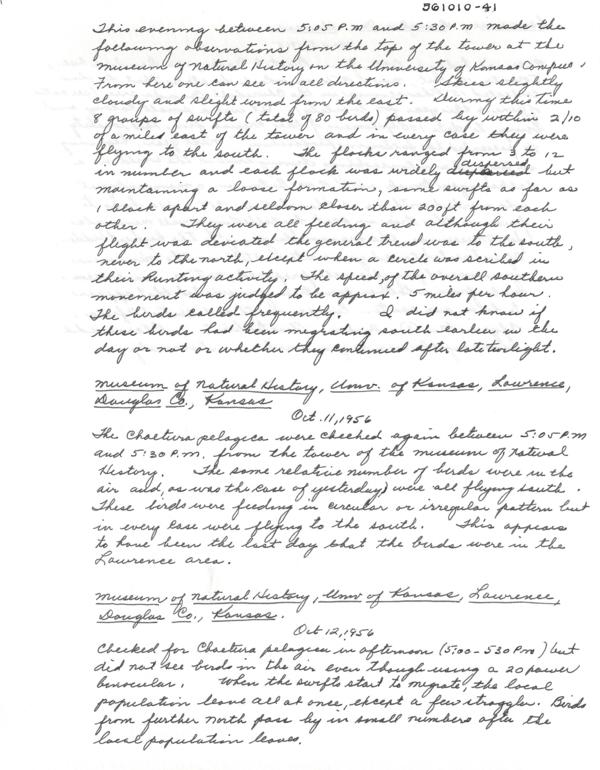 561010-41
This evening between 5:05 P.M and 5:30 P.M made the
following observations from the top of the tower at the
museum of Natural History on the University of Kansas Campus.
From here one can see in all directions. Skies slightly
cloudy and slight wind from the east. During this time
8 groups of swifts (total of 80 birds) passed by within 2/10
of a miles east of the tower and in every case they were
flying to the south. The flocks ranged from 3 to 12
in number and each flock was widely dispersed but
maintaining a loose formation, some swifts as far as
1 block apart and seldom closer than 200 ft from each
other. They were all feeding and although their
flight was deviated the general trend was to the south,
never to the north, except when a circle was scribed in
their hunting activity. The speed, of the overall southern
movement was judged to be approx. 5 miles per hour.
The birds called frequently. I did not know if
these birds had been migrating south earlier in the
day or not or whether they continued after late twilight.
Museum of Natural History, Univ. of Kansas, Lawrence,
Douglas Co., Kansas
Oct. 11, 1956
The Chaetura pelagica were checked again between 5:05 P.M
and 5:30 P.M. from the tower of the museum of natural
History. The same relative number of birds were in the
air and, as was the case of yesterday) were all flying south.
These birds were feeding in circular or irregular pattern but
in every case were flying to the south. This appears
to have been the last day that the birds were in the
Lawrence area.
Museum of Natural History, Univ of Kansas, Lawrence,
Douglas Co., Kansas.
Oct 12, 1956
Checked for Chaetura pelagica in afternoon (5:00-530 Pm) but
did not see birds in the air even though using a 20 power
binocular. When the swifts start to migrate, the local
population leave all at once, except a few straggler. Birds
from further north pass by in small numbers after the
local population leaves.